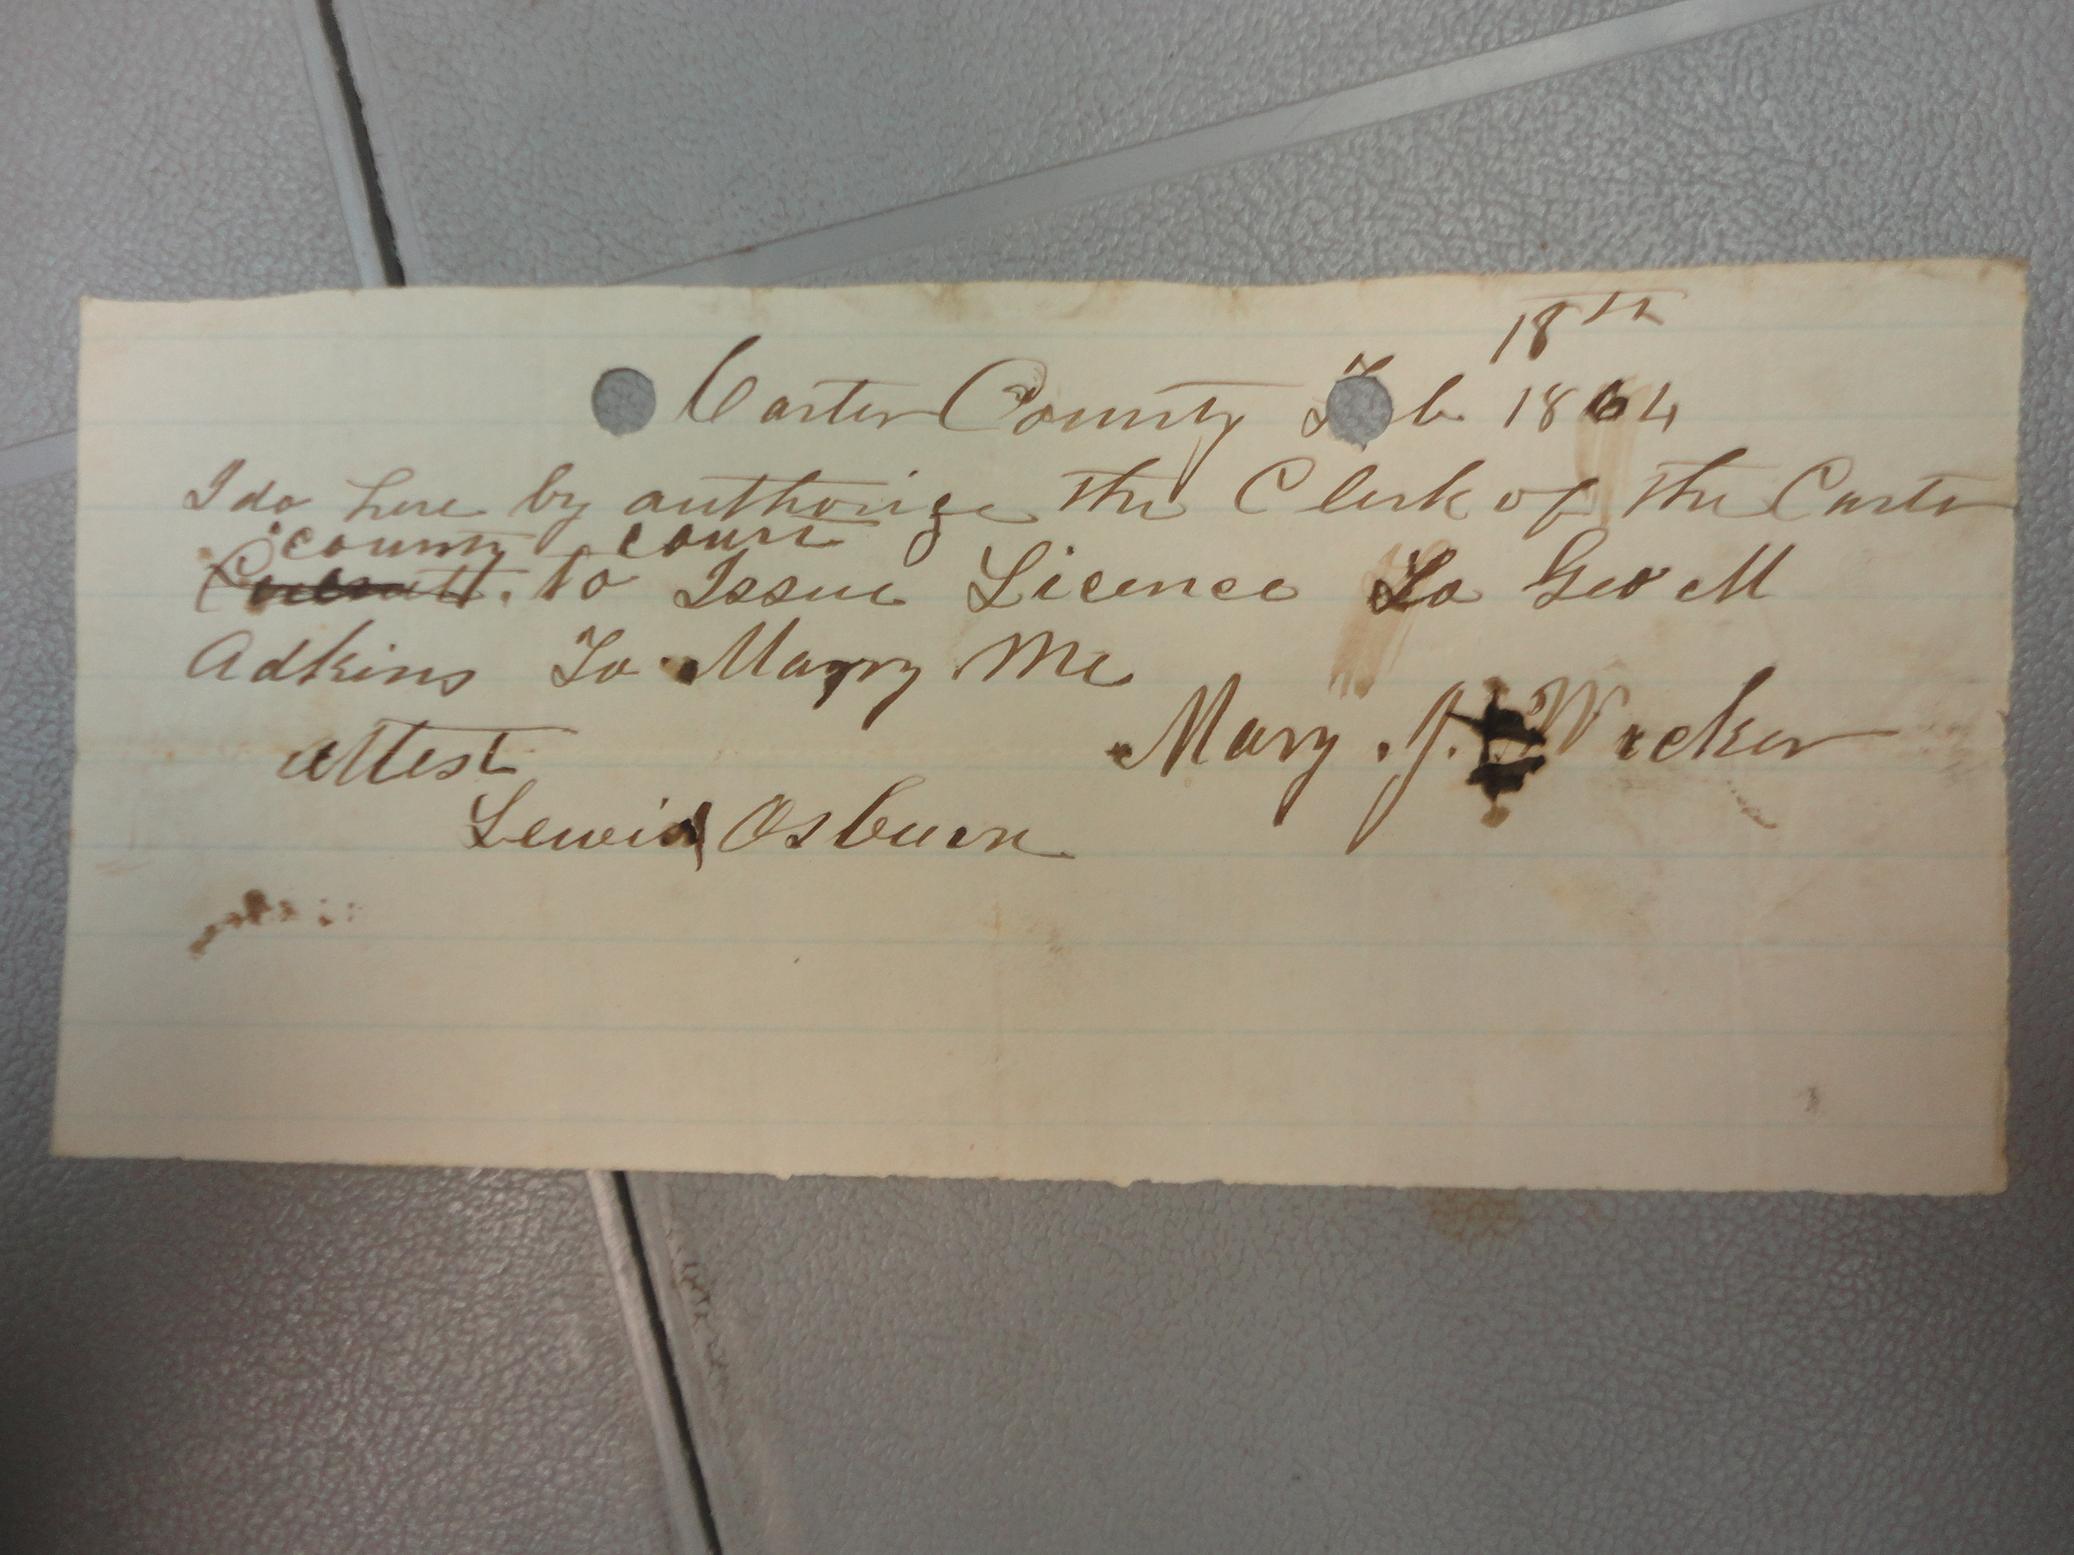 18th
Carter County Feb 1864
I do here by authorize the Clerk of the Carter
county court
to Issue Licence To Geo M
Adkins To Marry Me
attest
Mary . J. Wecker
Lewis Osburn